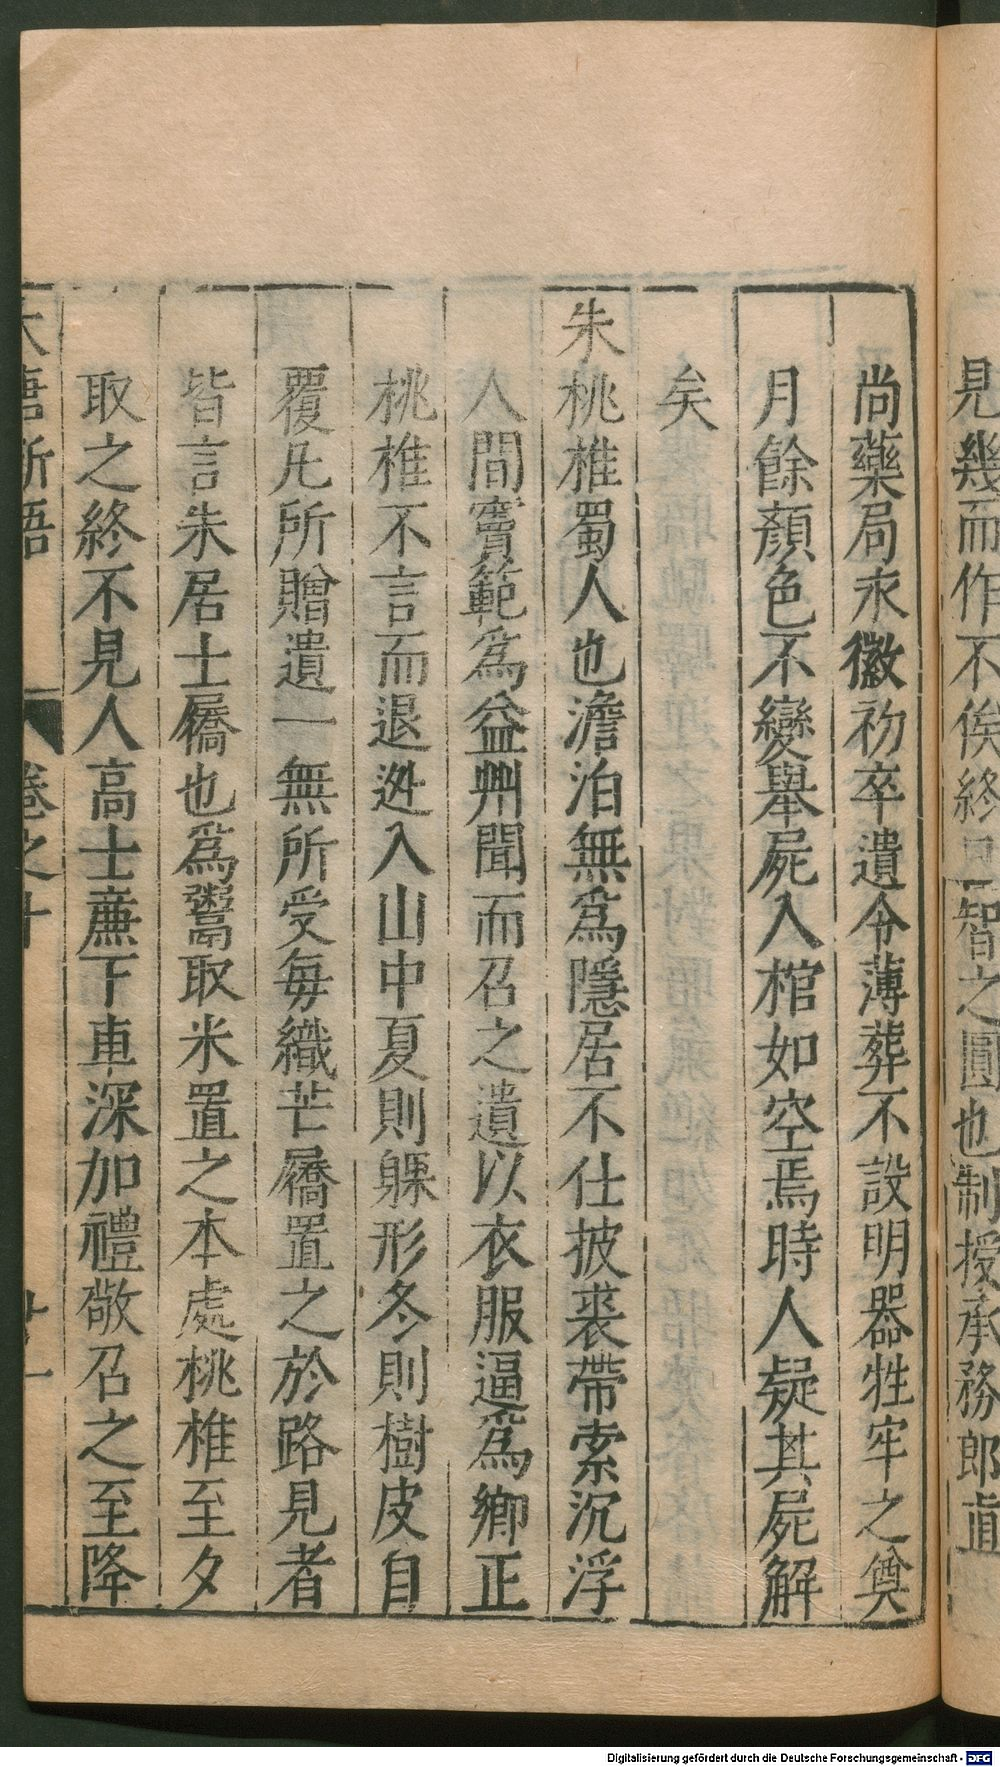 見幾而作不俟終日智之圓也制授承務郎直
尚藥局永徽初卒遺令薄葬不設明器牲牢之奠
月餘顏色不變舉屍入棺如空焉時人疑其屍解
矣
朱桃椎蜀人也澹泊無爲隱居不仕披裘帶索沉浮
人間竇範爲益州聞而召之遺以衣服逼爲鄉正
桃椎不言而退逃入山中夏則躶形冬則樹皮自
覆凡所贈遺一無所受每織芒屩置之於路見者
皆言朱居士屩也爲鬻取米置之本處桃椎至夕
取之終不見人高士廉下車深加禮敬召之至降
大唐新語 卷之十 廿一
Digitalisierung gefördert durch die Deutsche Forschungsgemeinschaft - DFG